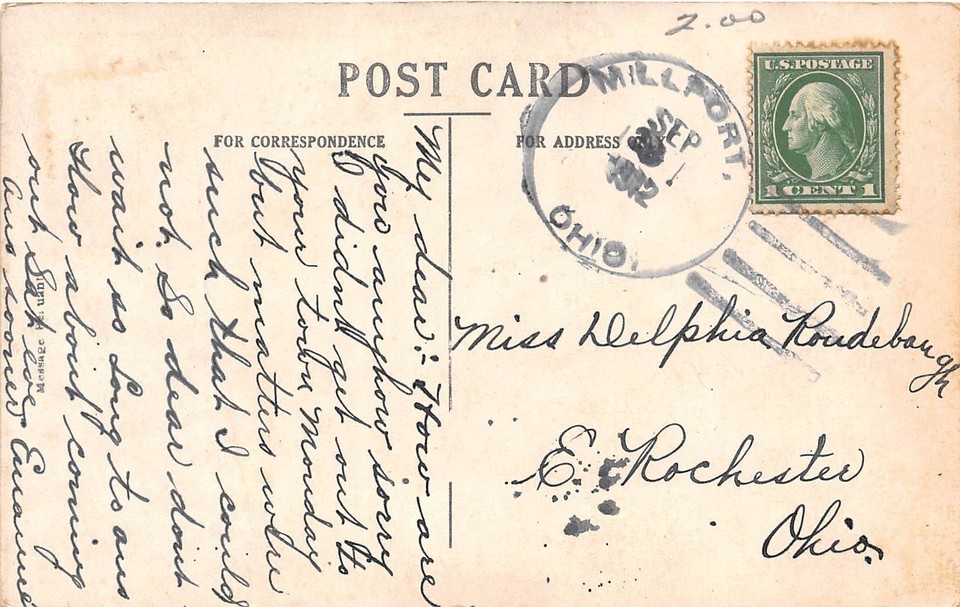 2.00
POST CARD
FOR CORRESPONDENCE
FOR ADDRESS ONLY
MILLPORT,
SEP
1912
OHIO.
U.S. POSTAGE
1 CENT 1
My dear:- How are
you anyhow sorry
I didn't get out to
your town Monday
but matters were
such that I could
not. So dear don't
wait so long to ans
How about coming
out Sat eve
Ans soon
Message
Miss Delphia Roudebaugh
E Rochester
Ohio.